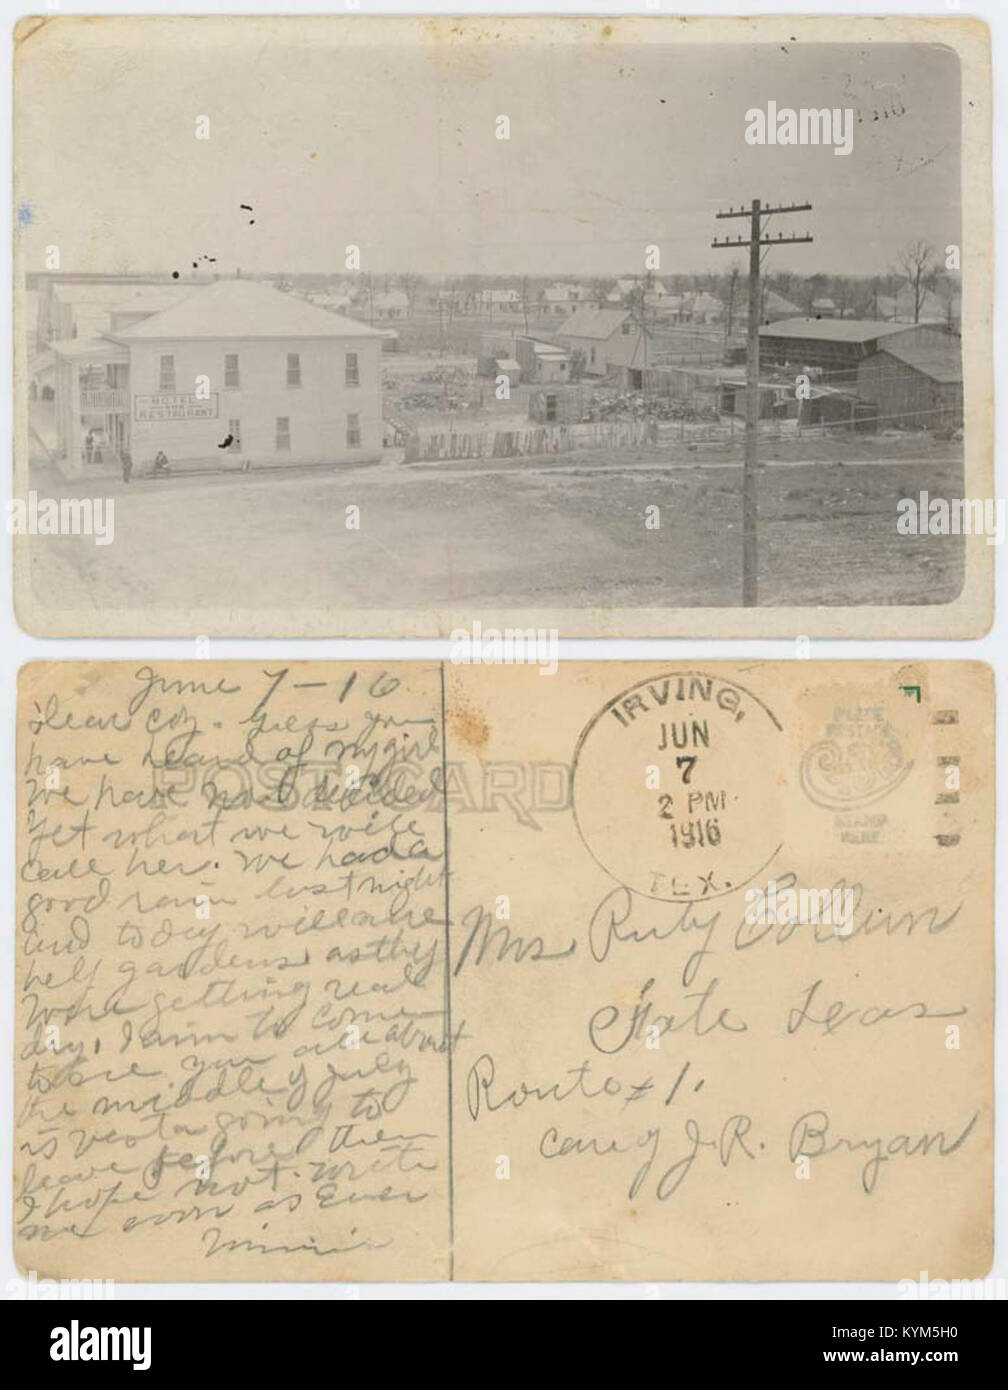 HOTEL
AND
RESTAURANT
June 7-16
Dear Coz. Guess you
have heard of my girl
We have not decided
yet what we will
call her. We had a
good rain last night
and today will sure
help gardens as they
were getting real
dry, I aim to come
to see you all about
the middle of July
is Vesta going to
leave before then
I hope not. write
me soon as Ever
Minnie
POST CARD
IRVING,
JUN
7
2 PM
1916
TEX.
PLACE
POSTAGE
STAMP
HERE
Mrs Ruby Collum
Route #1.
care of J.R. Bryan
alamy
Image ID: KYM5H0
www.alamy.com